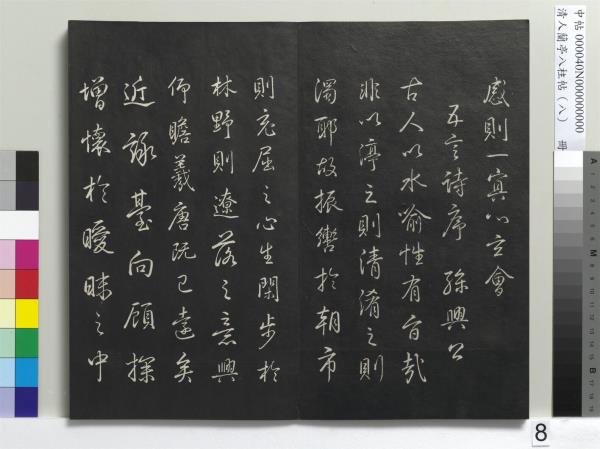 中帖 000040N000000000 冊
清人蘭亭八柱帖（八）
感則一冥心玄會
五言詩序 孫興公
古人以水喻性有旨哉
非以渟之則清淆之則
濁耶故振轡於朝市
則充屈之心生閑步於
林野則遼落之意興
仰瞻羲唐已遠矣
近詠臺向顧探
增懷於曖昧之中
8